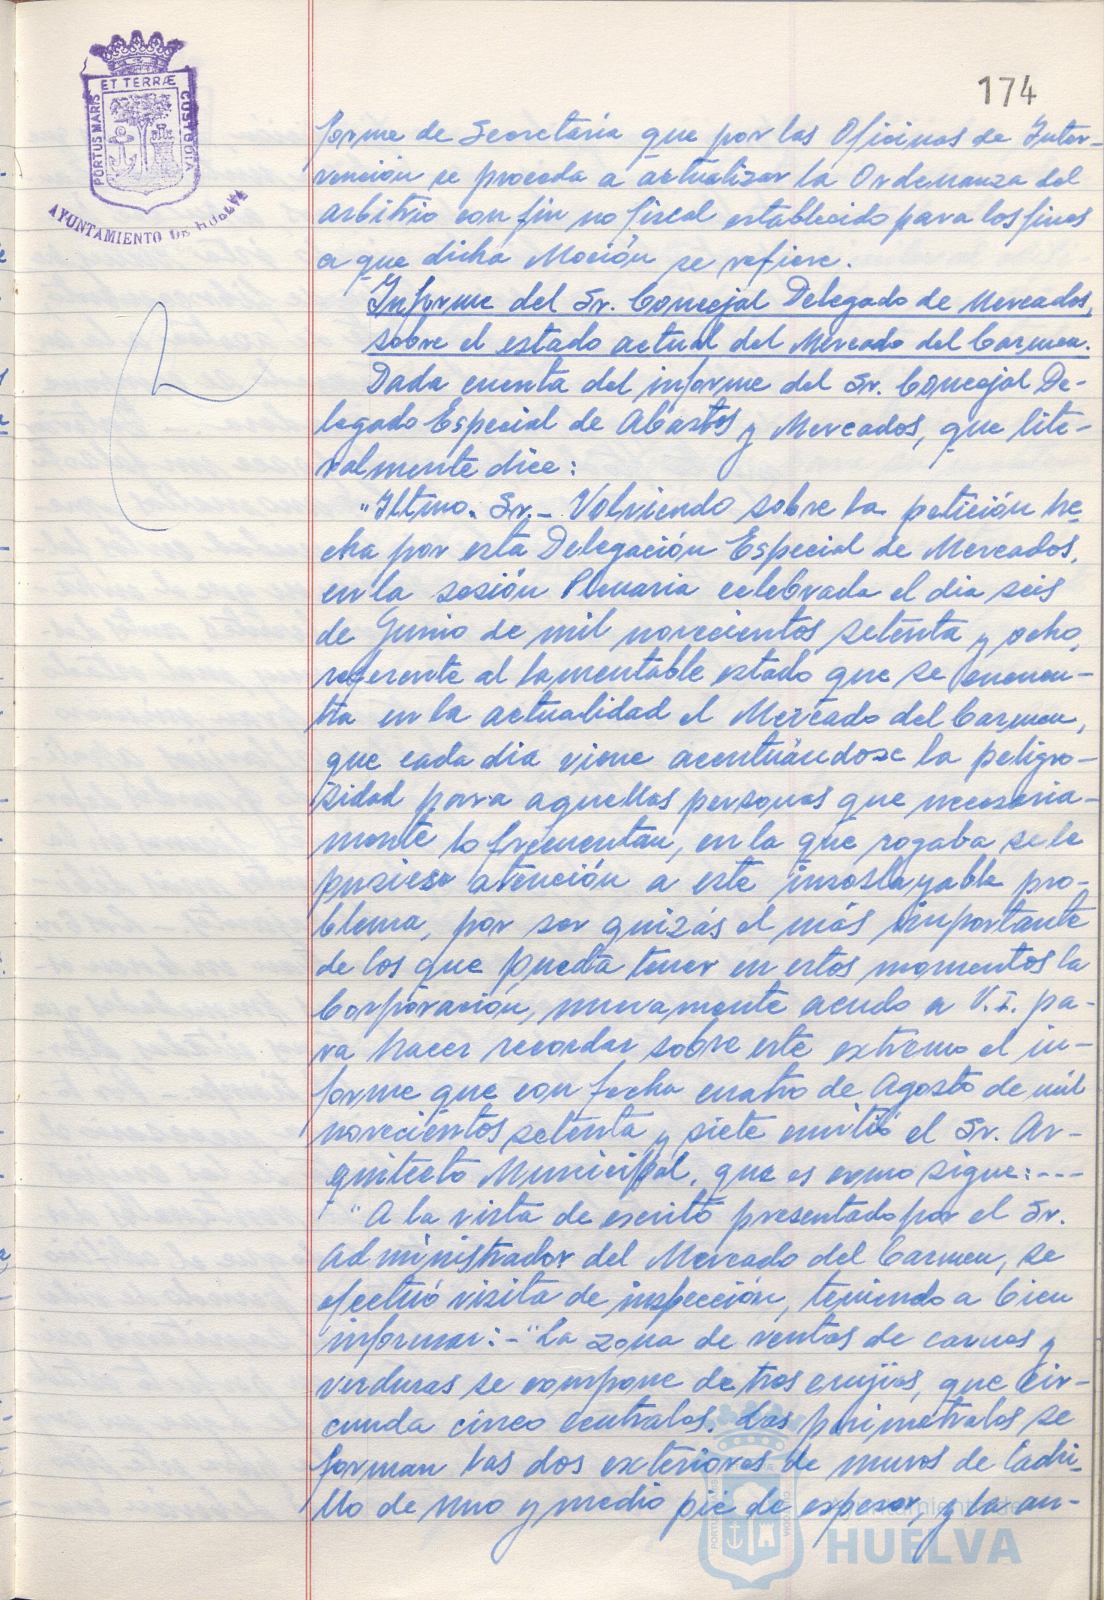 PORTUS MARIS ET TERRÆ CUSTODIA
AYUNTAMIENTO DE HUELVA
174
forme de Secretaría que por las Oficinas de Inter-
vención se proceda a actualizar la Ordenanza del
arbitrio con fin no fiscal establecido para los fines
a que dicha Moción se refiere.
Informe del Sr. Concejal Delegado de Mercados,
sobre el estado actual del Mercado del Carmen.
Dada cuenta del informe del Sr. Concejal De-
legado Especial de Abastos y Mercados, que lite-
ralmente dice:
"Iltmo. Sr.- Volviendo sobre la petición he-
cha por esta Delegación Especial de Mercados,
en la sesión Plenaria celebrada el dia seis
de Junio de mil novecientos setenta y ocho,
referente al lamentable estado que se encuen-
tra en la actualidad el Mercado del Carmen,
que cada dia viene acentuándose la peligro-
sidad para aquellas personas que necesaria-
mente lo frecuentan, en la que rogaba se le
pusiese atención a este insoslayable pro-
blema, por ser quizás el más importante
de los que pueda tener en estos momentos la
Corporación, nuevamente acudo a V.I. pa-
ra hacer recordar sobre este extremo el in-
forme que con fecha cuatro de Agosto de mil
novecientos setenta y siete emitió el Sr. Ar-
quitecto Municipal, que es como sigue:---
"A la vista de escrito presentado por el Sr.
Administrador del Mercado del Carmen, se
efectuó visita de inspección, teniendo a bien
informar:-"La zona de ventas de carnes y
verduras se compone de tres crujías, que cir-
cunda cinco centrales. Las perimetrales se
forman las dos exteriores de muros de ladri-
llo de uno y medio pié de espesor, y la an-
Ayuntamiento de
HUELVA